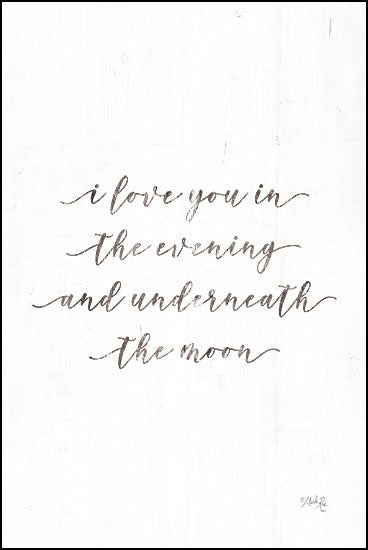 i love you in
the evening
and underneath
the moon